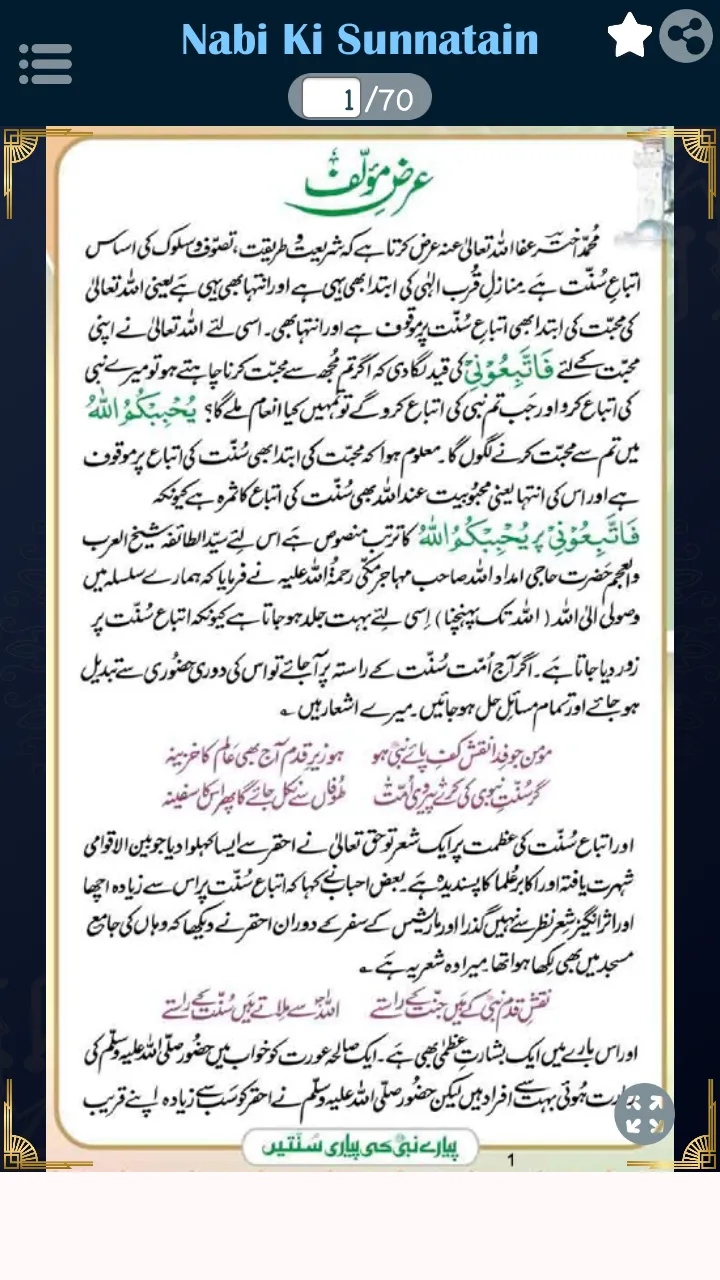 Nabi Ki Sunnatain
1 /70
عرضِ مؤلّف
محمّد اختر عفا اللہ تعالیٰ عنہ عرض کرتا ہے کہ شریعت و طریقت، تصوّف و سلوک کی اساس
اتباعِ سُنّت ہے۔ منازلِ قُربِ الٰہی کی ابتدا بھی یہی ہے اور انتہا بھی یہی ہے یعنی اللہ تعالیٰ
کی محبّت کی ابتدا بھی اتباعِ سُنّت پر موقوف ہے اور انتہا بھی۔ اسی لئے اللہ تعالیٰ نے اپنی
محبّت کے لئے فَاتَّبِعُوْنِیْ کی قید لگا دی کہ اگر تم مُجھ سے محبّت کرنا چاہتے ہو تو میرے نبی
کی اتباع کرو اور جب تم نبی کی اتباع کرو گے تو تمہیں کیا انعام ملے گا؟ یُحْبِبْکُمُ اللّٰہُ
میں تم سے محبّت کرنے لگوں گا۔ معلوم ہوا کہ محبّت کی ابتدا بھی سُنّت کی اتباع پر موقوف
ہے اور اس کی انتہا یعنی محبوبیت عند اللہ بھی سُنّت کی اتباع کا ثمرہ ہے کیونکہ
فَاتَّبِعُوْنِیْ پر یُحْبِبْکُمُ اللّٰہُ کا ترتب منصوص ہے اس لئے سیّد الطائفہ شیخ العرب
والعجم حضرت حاجی امداد اللہ صاحب مہاجر مکّی رحمۃُ اللہ علیہ نے فرمایا کہ ہمارے سلسلہ میں
وصولی الی اللہ (اللہ تک پہنچنا) اِسی لئے بہت جلد ہو جاتا ہے کیونکہ اتباعِ سُنّت پر
زور دیا جاتا ہے۔ اگر آج اُمّت سُنّت کے راستہ پر آ جائے تو اس کی دوری حضوری سے تبدیل
ہو جائے اور تمام مسائل حل ہو جائیں۔ میرے اشعار ہیں ؎
مؤمن جو فدا نقشِ کفِ پائے نبیؐ ہو ہو زیرِ قدم آج بھی عالم کا خزینہ
گر سُنّتِ نبوی کی کرے پیروی اُمّت طُوفاں سے نکل جائے گا پھر اس کا سفینہ
اور اتباعِ سُنّت کی عظمت پر ایک شعر تو حق تعالیٰ نے احقر سے ایسا کہلوا دیا جو بین الاقوامی
شہرت یافتہ اور اکابر علما کا پسندیدہ ہے۔ بعض احباب نے کہا کہ اتباعِ سُنّت پر اس سے زیادہ اچھا
اور اثر انگیز شعر نظر سے نہیں گذرا اور ماریشس کے سفر کے دوران احقر نے دیکھا کہ وہاں کی جامع
مسجد میں بھی لکھا ہوا تھا۔ میرا وہ شعر یہ ہے ؎
نقشِ قدم نبیؐ کے ہیں جنّت کے راستے اللہ سے ملاتے ہیں سُنّت کے راستے
اور اس بارے میں ایک بشارتِ عظمیٰ بھی ہے۔ ایک صالحہ عورت کو خواب میں حضور صلّی اللہ علیہ وسلّم کی
ہُوئی بہت سے افراد ہیں لیکن حضُور صلّی اللہ علیہ وسلّم نے احقر کو سَب سے زیادہ اپنے قریب
پیارے نبیؐ کی پیاری سُنّتیں
1